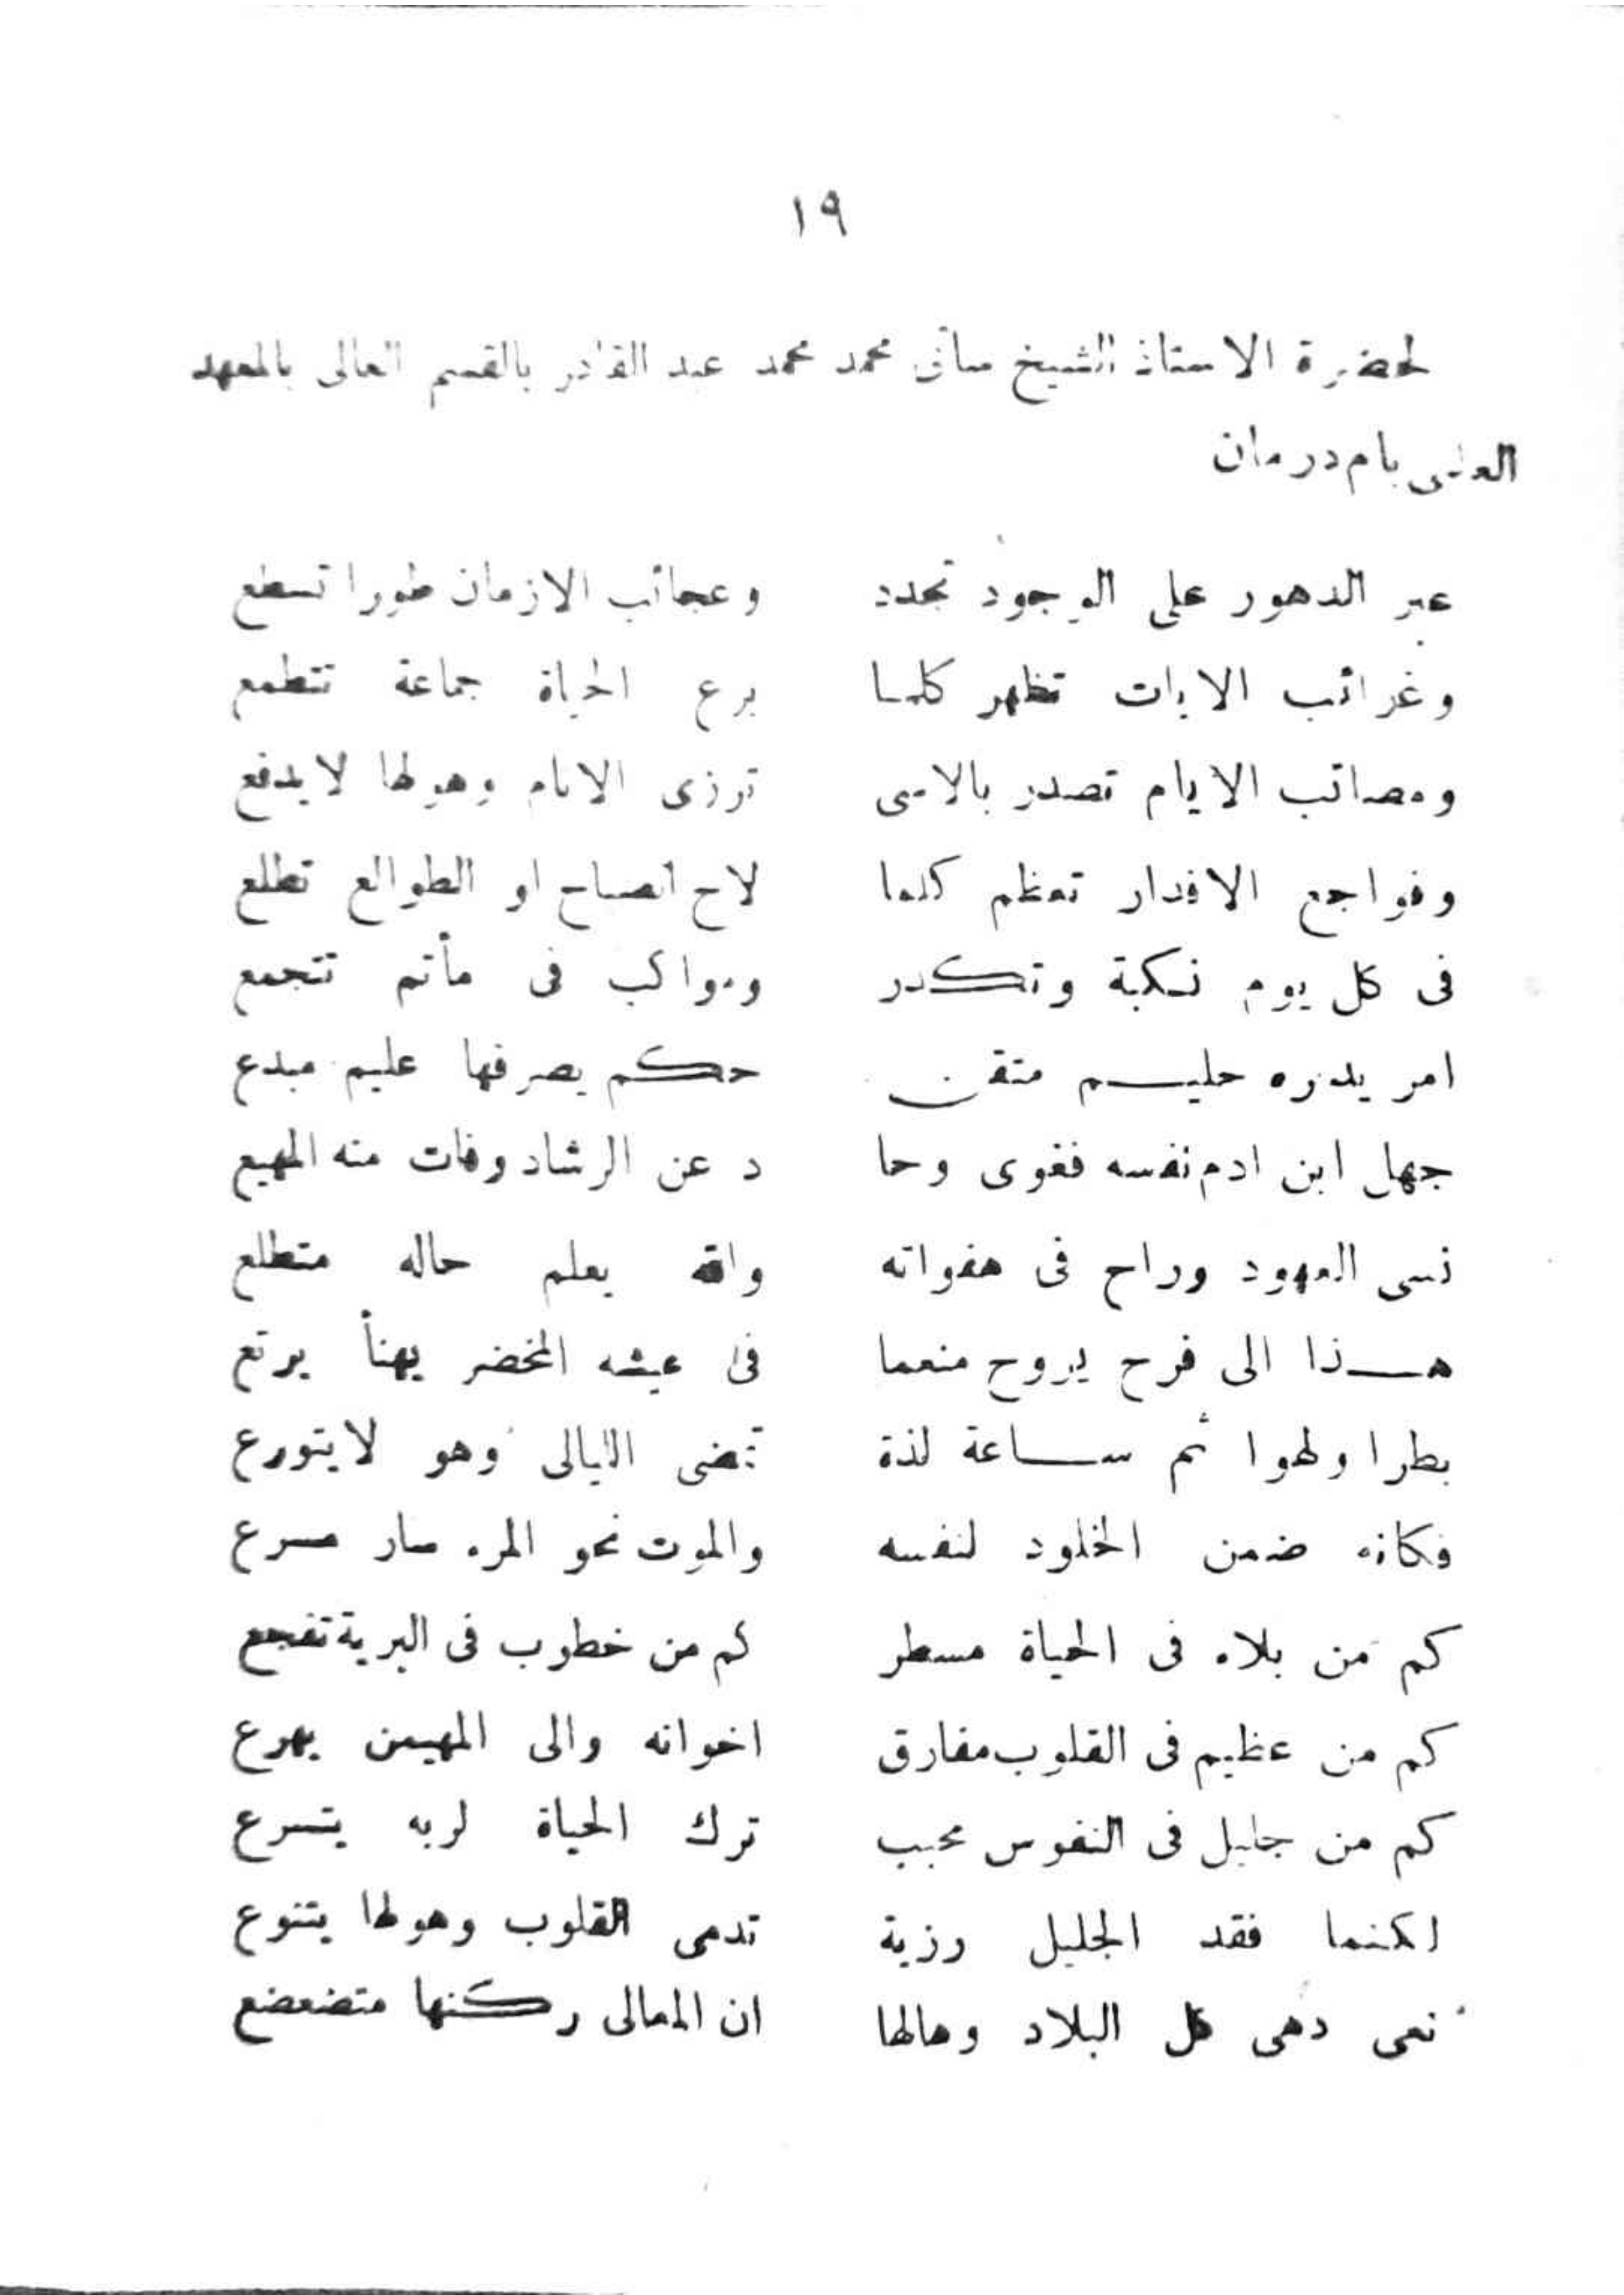 ١٩
لحضرة الاستاذ الشيخ ساتى محمد محمد عبد القادر بالقسم العالى بالمعهد
العلمى بام درمان
عبر الدهور على الوجود تجدد وعجائب الازمان طورا تسطع
وغرائب الايات تظهر كلما برع الحياة جماعة تتطمع
ومصائب الايام تصدر بالاسى ترزى الانام وهولها لا يدفع
وفواجع الاقدار تعظم كلما لاح الصباح او الطوالع تطلع
فى كل يوم نكبة وتكدر ومواكب فى مأتم تتجمع
امر يدبره حليم متقن حكم يصرفها عليم مبدع
جهل ابن ادم نفسه فغوى وحا د عن الرشاد وفات منه المهيع
نسى العهود وراح فى هفواته والله يعلم حاله متطلع
هذا الى فرح يروح منعما فى عيشه المخضر يهنأ يرتع
بطرا ولهوا ثم ساعة لذة تمضى الليالى وهو لا يتورع
فكانه ضمن الخلود لنفسه والموت نحو المرء سار مسرع
كم من بلاء فى الحياة مسطر كم من خطوب فى البرية تفجع
كم من عظيم فى القلوب مفارق اخوانه والى المهيمن يهرع
كم من جليل فى النفوس محبب ترك الحياة لربه يتسرع
لكنما فقد الجليل رزية تدمى القلوب وهولها يتنوع
نعى دهى كل البلاد وهالها ان المعالى ركنها متضعضع